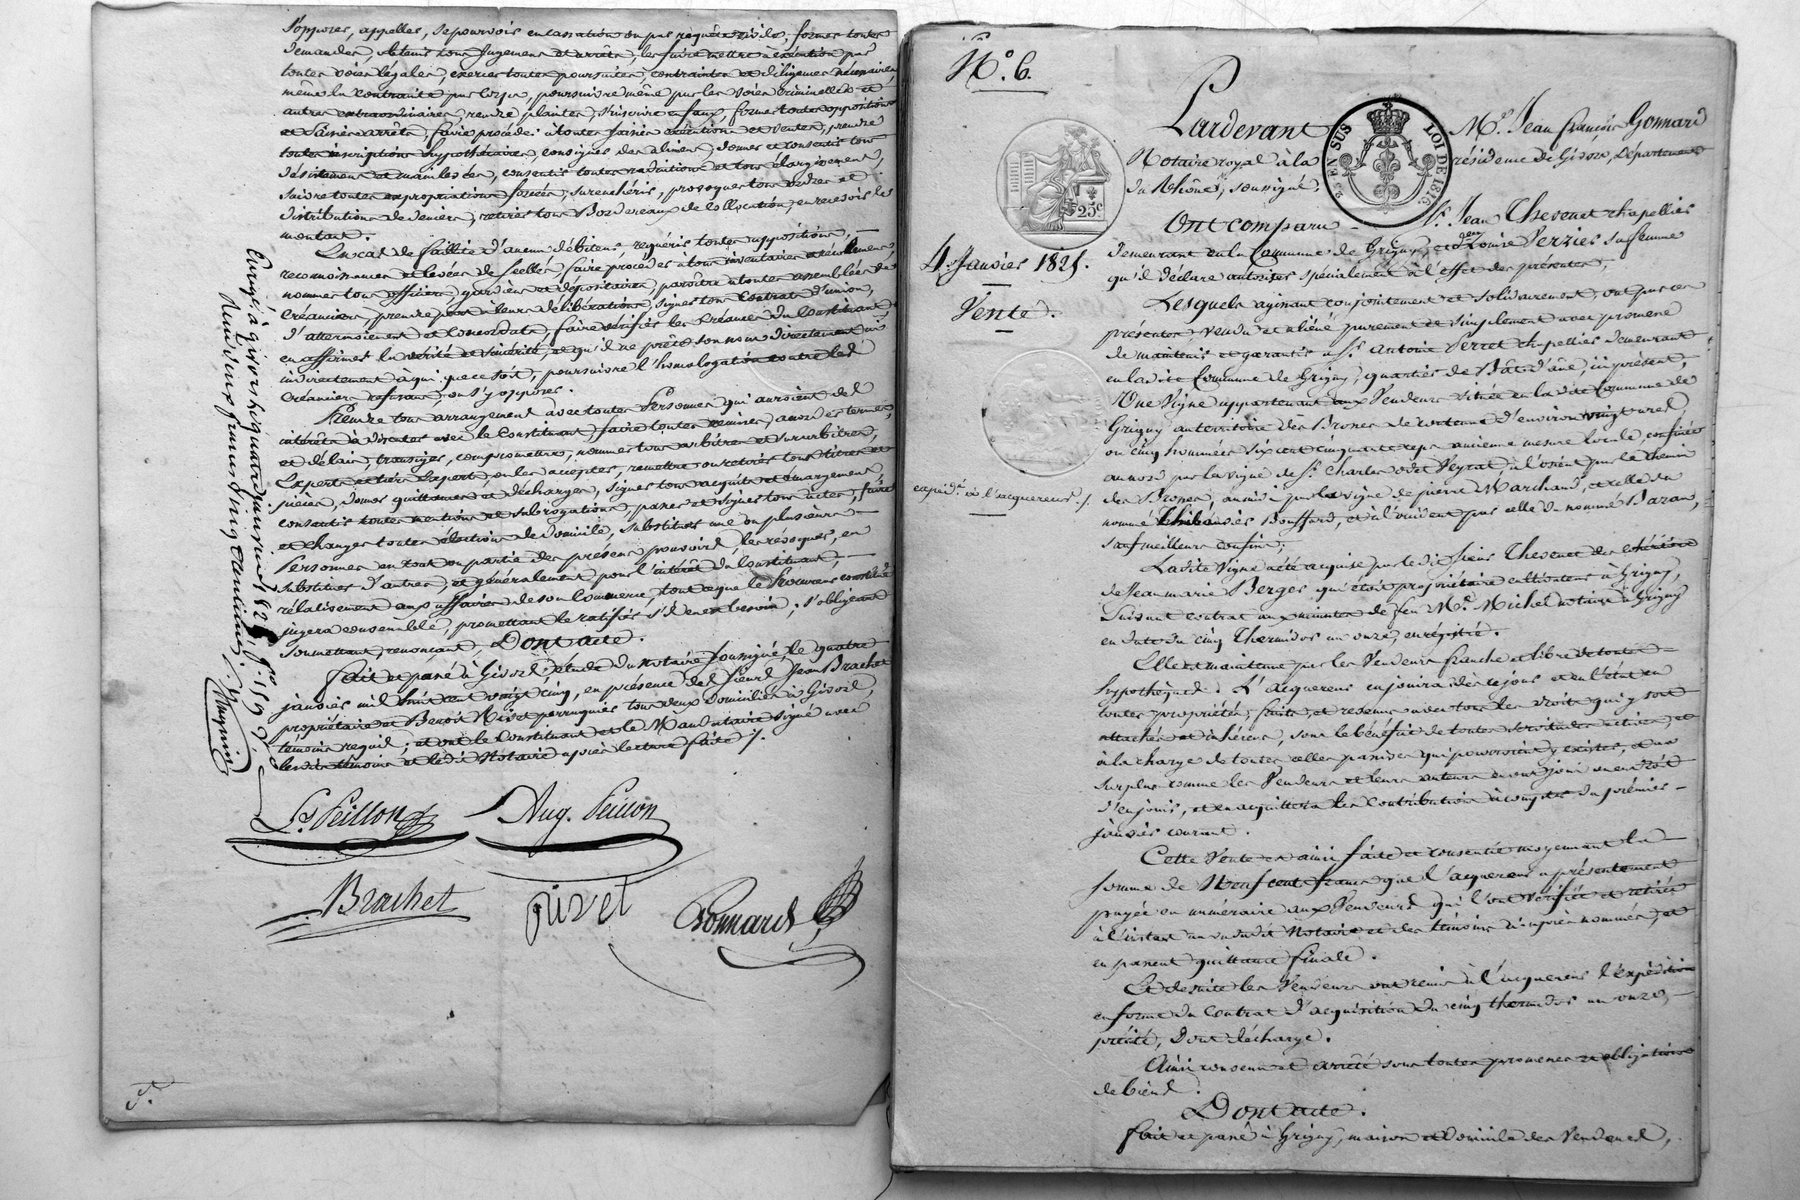 s'opposer, appeller, se pourvoir en cassation ou par requête civile, former toutes
demandes, obtenir tous Jugemens et arrêts, les faire mettre à exécution par
toutes voies légales, exercer toutes poursuites, contraintes et diligences nécessaires,
même la contrainte par corps, poursuivre même par les voies criminelles et
autres extraordinaires, rendre plaintes, s'inscrire en faux, former toutes oppositions
et saisies arrêts, faire procéder à toutes saisies exécutions et ventes, prendre
toutes inscriptions hypothécaires, consigner des alimens, donner et consentir tous
désistemens et mainlevées, consentir toutes radiations et tous élargissemens,
suivre toutes expropriations forcées, surenchérir, provoquer tous ordres et
distributions de deniers, retirer tous Bordereaux de collocation, en recevoir le
montant.
En cas de faillite d'aucuns débiteurs, requérir toutes appositions,
reconnaissances et levées de scellés, faire procéder à tous inventaires et récolemens,
nommer tous officiers, gardiens et dépositaires, paraître à toutes assemblées de
Créanciers, prendre part à leurs délibérations, signer tous Contrats d'union,
d'attermoiement et Concordats, faire vérifier les Créances du Constituant
en affirmer la vérité et sincérité, et qu'il ne prête son nom directement ni
indirectement à qui que ce soit, poursuivre l'homologation contre les
Créanciers refusans, ou s'y opposer.
Prendre tous arrangemens avec toutes Personnes qui auroient des
intérêts à discuter avec le Constituant, faire toutes remises, accorder termes
et délais, transiger, compromettre, nommer tous arbitres et surarbitres,
Experts et tiers Experts, ou les accepter, remettre ou retirer tous titres et
pièces, donner quittances et décharges, signer tous acquits et émargemens
consentir toutes mentions et subrogations, passer et signer tous actes, faire
et changer toutes élections de domicile, substituer une ou plusieurs
Personnes en tout ou partie des présens pouvoirs, les révoquer, en
substituer d'autres, et généralement pour l'intérêt du Constituant,
rélativement aux affaires de son Commerce, tout ce que le Procureur constitué
jugera convenable, promettant le ratifier s'il en est besoin; s'obligeant
soumettant, renonçant, Dont acte.
fait et passé à Givors, étude du notaire soussigné le quatre
janvier mil huit cent vingt cinq, en présence des sieurs Jean Brachet
propriétaire et Benoit Rivet perruquier tous deux Domiciliés à Givors,
témoins requis; et ont le Constituant et le Mandataire signé avec
les dits témoins et ledit Notaire après lecture faite /.
Enrgé à givors le quatre janvier 1825 f°. 159
Reçu deux francs vingt centimes.
P. Peillon
Aug. Peillon
Brachet
Rivet
Gonnard
N.° 6.
4. Janvier 1825.
Vente.
expédon. à l'acquereur /.
25 EN SUS
LOI DE 1816
25c
Pardevant Me. Jean françois Gonnard
Notaire royal à la résidence de Givors, Département
du Rhône, soussigné,
Ont comparu Sr. Jean Thevenet chapellier
demeurant en la Commune de Grigny, et Louise Verzier sa femme
qu'il déclare autoriser spécialement à l'effet des présentes;
Lesquels agissant conjointement et solidairement, ont par ces
présentes vendu et aliéné purement et simplement avec promesse
de maintenir et garantir à Sr. Antoine Verret chapellier demeurant
en la dite Commune de Grigny, quartier de Bât-d'âne, ici présent,
Une Vigne appartenant aux Vendeurs située en la dite Commune de
Grigny au territoire des Brones de contenue d'environ vingt ares
ou cinq hommées six cent cinquante ceps ancienne mesure locale, confinée
au nord par la vigne de Sr. Charles Veyrat, à l'orient par le chemin
des Brones, au midi par la vigne de pierre Marchand, et celle du
nommé Bouffard, et à l'occident par celle du nommé Bazan,
sauf meilleurs confins;
La dite Vigne a été acquise par le dit sieur Thevenet des héritiers
de Jean marie Berger qui étoit propriétaire cultivateur à Grigny,
suivant contrat aux minutes de feu Me. Michel notaire à Grigny
en date du cinq thermidor an onze, enrégistré.
Elle est maintenue par les Vendeurs franche et libre de toutes
hypothèques. L'acquereur en jouira dès ce jour et en l'état en
toutes propriétés, fruits, et revenus avec tous les droits qui y sont
attachés et inhérens, sous le bénéfice de toutes servitudes actives, et
à la charge de toutes celles passives qui pourroient y exister, et au
surplus comme les Vendeurs et leurs auteurs en ont joui ou eu droit
d'en jouir, et en acquittera les contributions à compter du premier
janvier courant.
Cette Vente est ainsi faite et consentie moyennant la
somme de Neuf cent francs que l'acquereur a présentement
payée en numéraire aux Vendeurs qui l'ont vérifiée et retirée
à l'instant au vu dudit Notaire et des témoins ci-après nommés, et
en passent quittance finale.
Et de suite les Vendeurs ont remis à l'acquereur l'expédition
en forme du Contrat d'acquisition du cinq thermidor an onze,
précité, Dont décharge.
Ainsi convenu et arrêté sous toutes promesses et obligations
de biens.
Dont acte.
fait et passé à Grigny, maison et Domicile des Vendeurs,